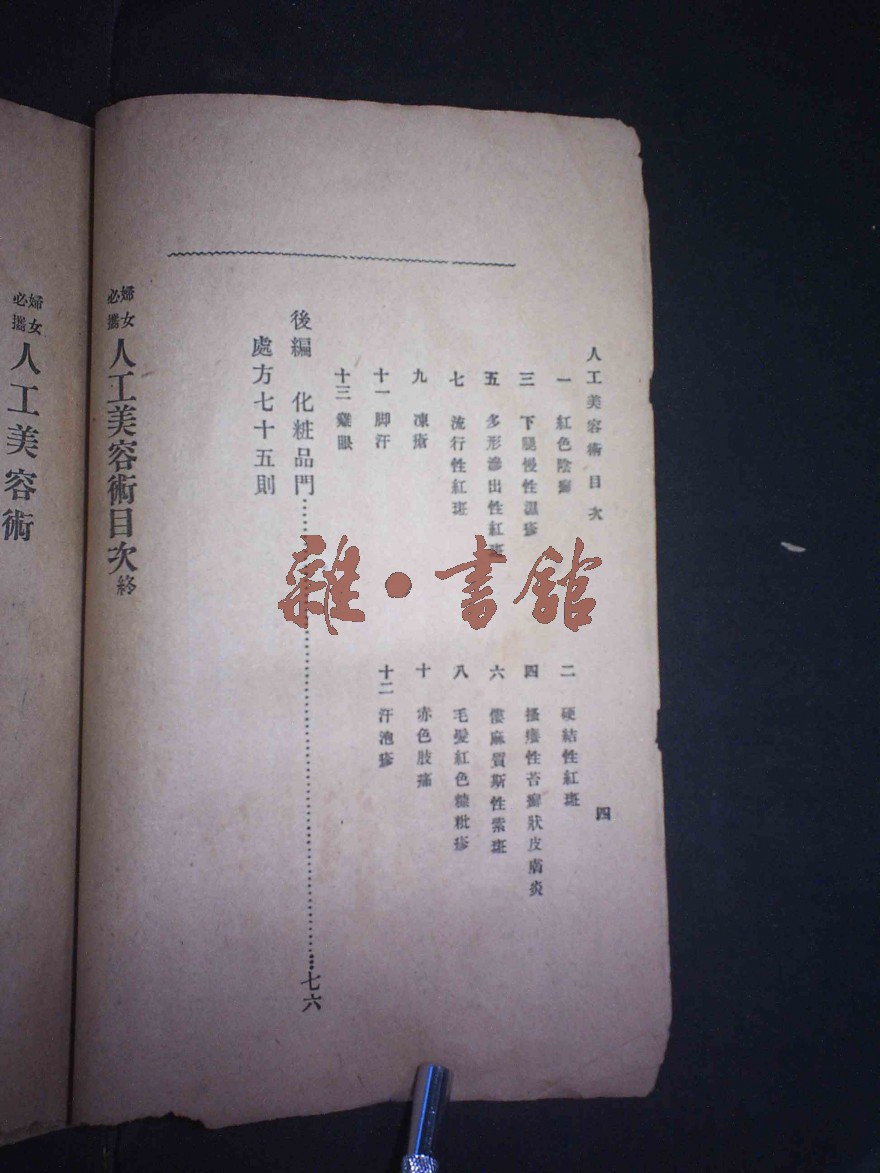 人工美容術目次
四
一 紅色陰癬
二 硬結性紅斑
三 下腿慢性濕疹
四 搔癢性苔癬狀皮膚炎
五 多形滲出性紅斑
六 僂麻質斯性紫斑
七 流行性紅斑
八 毛髮紅色糠粃疹
九 凍瘡
十 赤色肢痛
十一 脚汗
十二 汗泡疹
十三 雞眼
後編 化粧品門……七六
處方七十五則
婦女必攜 人工美容術目次終
婦女必攜 人工美容術
雜·書館